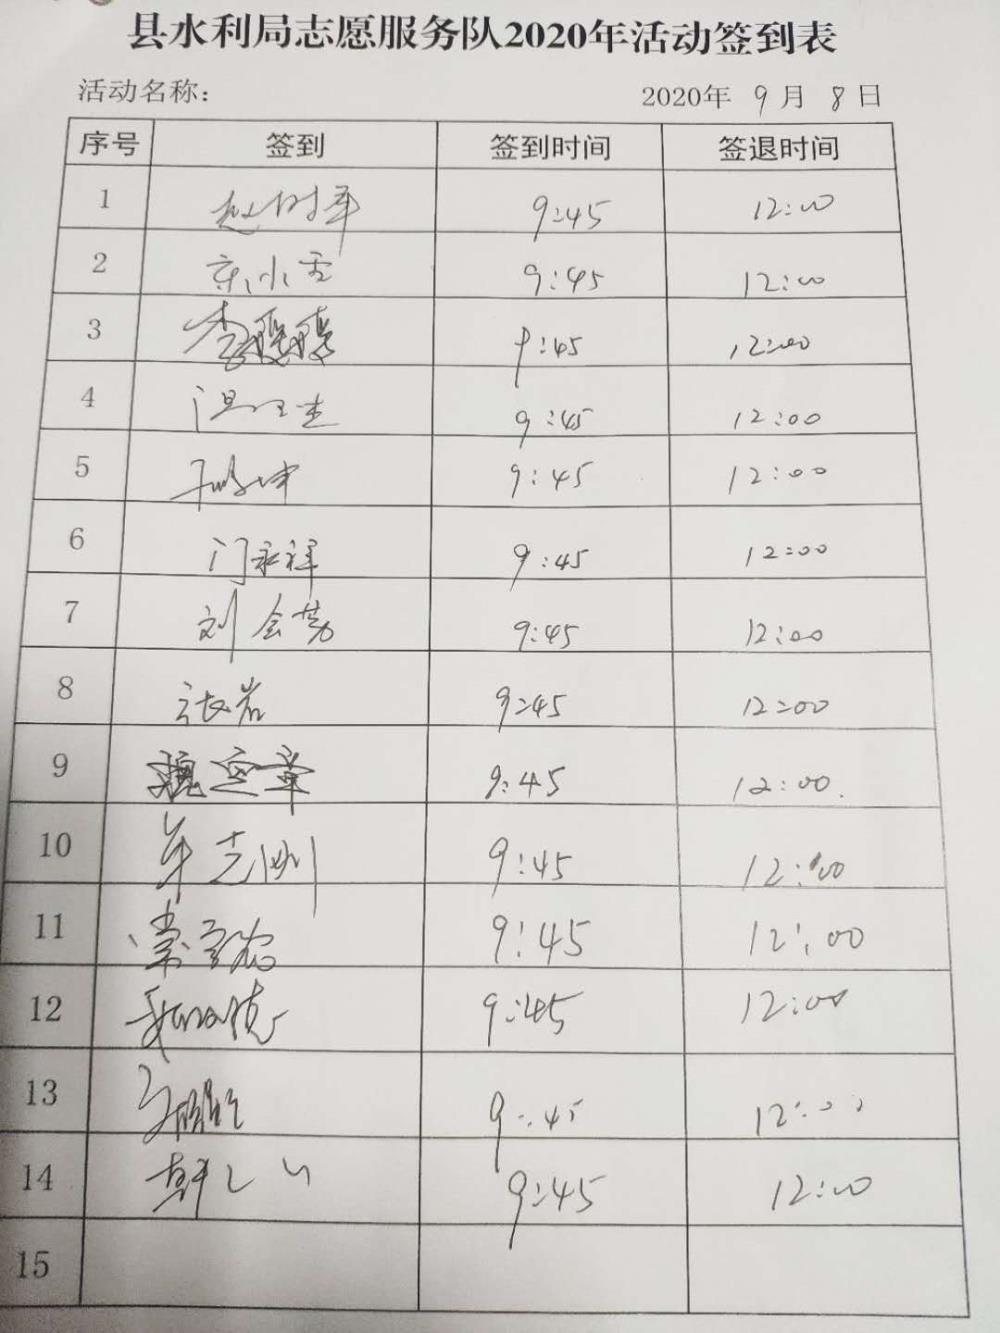 县水利局志愿服务队2020年活动签到表
活动名称： 2020年 9月 8日
序号 签到 签到时间 签退时间
1 赵树军 9:45 12:00
2 9:45 12:00
3 9:45 12:00
4 9:45 12:00
5 9:45 12:00
6 门永祥 9:45 12:00
7 刘会芳 9:45 12:00
8 张岩 9:45 12:00
9 9:45 12:00.
10 9:45 12:00
11 9:45 12:00
12 9:45 12:00
13 9:45 12:00
14 9:45 12:00
15